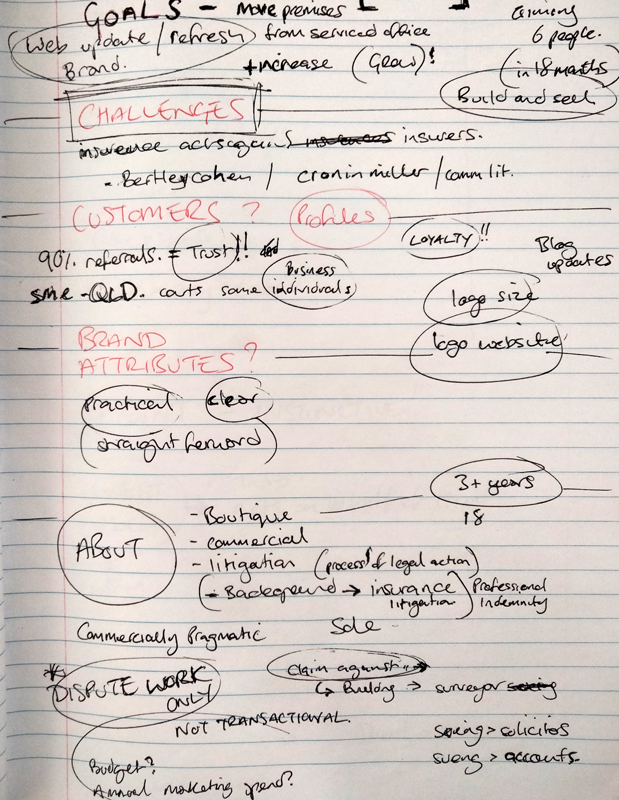 GOALS - More premises
Web update / refresh from serviced office
Brand. + increase (Grow)!
6 people.
(in 18 months
Build and seek
CHALLENGES
insurance acts against insurers.
- Bertley cohen / cronin miller / comm lit.
CUSTOMERS? Profiles
90% referrals. = Trust!! LOYALTY!!
Blog
updates
sme - QLD. couts some Business
individuals
logo size
logo website
BRAND
ATTRIBUTES?
Practical clear
straight forward
3+ years
18
ABOUT
- Boutique
- commercial
- litigation (process of legal action)
(- Background → insurance
litigation) Professional
Indemnity
Commercially Pragmatic Sole
* DISPUTE WORK
ONLY
NOT TRANSACTIONAL.
Claim against →
↳ Building → surveyor
Sueing > solicitos
sueng > accounts.
Budget?
Annual marketing spend?